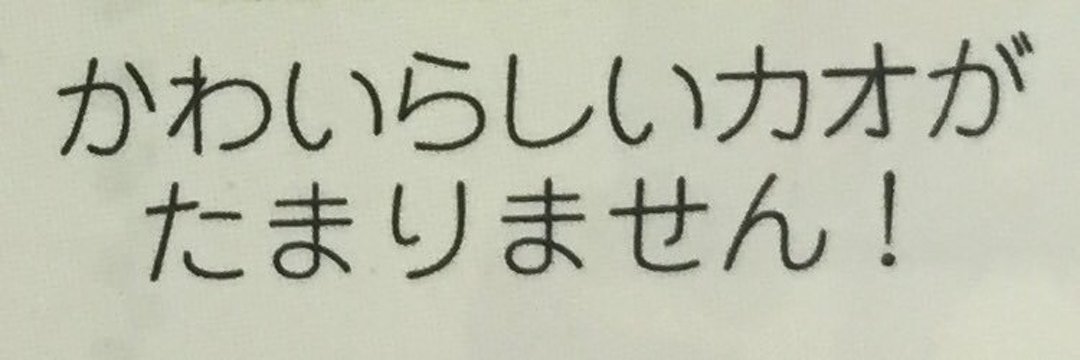 かわいらしいカオが
たまりません！